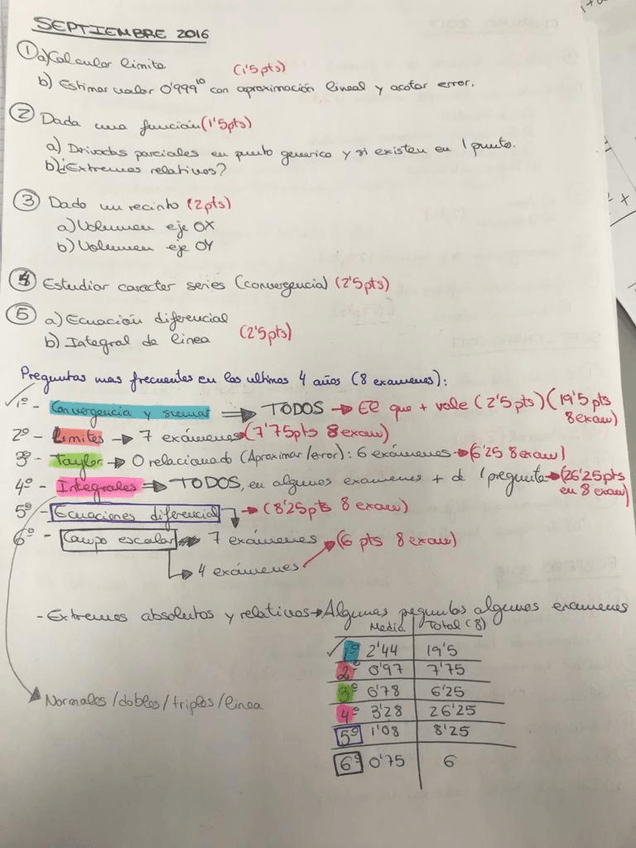 SEPTIEMBRE 2016
① a) Calcular límite (1'5 pts)
b) Estimar valor 0'999^10 con aproximación lineal y acotar error.
② Dada una función (1'5pts)
a) Drivadas parciales en punto generico y si existen en 1 punto.
b) ¿Extremos relativos?
③ Dado un recinto (2pts)
a) Volumen eje OX
b) Volumen eje OY
④ Estudiar caracter series (convergencia) (2'5 pts)
⑤ a) Ecuación diferencial
b) Integral de linea (2'5 pts)
Preguntas mas frecuentes en los ultimos 4 años (8 examenes):
✓ 1º - Convergencia y sumas ⇒ TODOS → El que + vale (2'5 pts) (19'5 pts 8 exam)
2º - Limites → 7 exámenes → (7'75pts 8 exam)
3º - Taylor → O relacionado (Aproximar/error): 6 exámenes → (6'25 8 exam)
4º - Integrales ⇒ TODOS, en algunos examenes + d 1 pregunta → (26'25pts en 8 exam)
5º - Ecuaciones diferencial → (8'25pts 8 exam)
6º - Campo escalar → 7 exámenes → (6 pts 8 exam)
→ 4 exámenes
- Extremos absolutos y relativos → Algunas preguntas algunos examenes
Media Total (8)
✓ 1º 2'44 19'5
2º 0'97 7'75
3º 0'78 6'25
4º 3'28 26'25
5º 1'08 8'25
6º 0'75 6
Normales/dobles/triples/linea